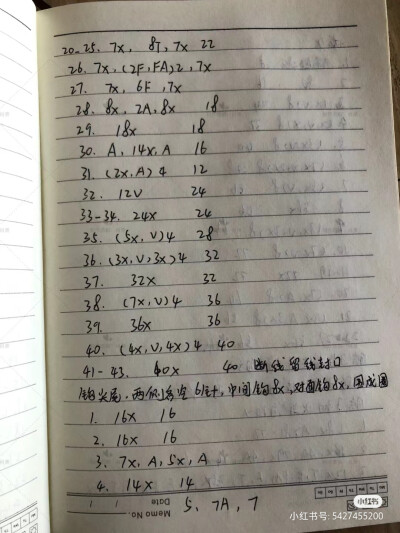 20-25. 7x, 8T, 7x 22
26. 7x, (2F, FA)2, 7x
27. 7x, 6F, 7x
28. 8x, 2A, 8x 18
29. 18x 18
30. A, 14x, A 16
31. (2x, A) 4 12
32. 12V 24
33-34. 24x 24
35. (5x, V)4 28
36. (3x, V, 3x)4 32
37. 32x 32
38. (7x, V)4 36
39. 36x 36
40. (4x, V, 4x)4 40
41-43. 40x 40 断线留线封口
钩尖尾. 两侧各空6针, 中间钩8x, 对面钩8x, 围成圈
1. 16x 16
2. 16x 16
3. 7x, A, 5x, A
4. 14x 14
5、7A, 7
Memo No.
Date
小红书
小红书号: 5427455200